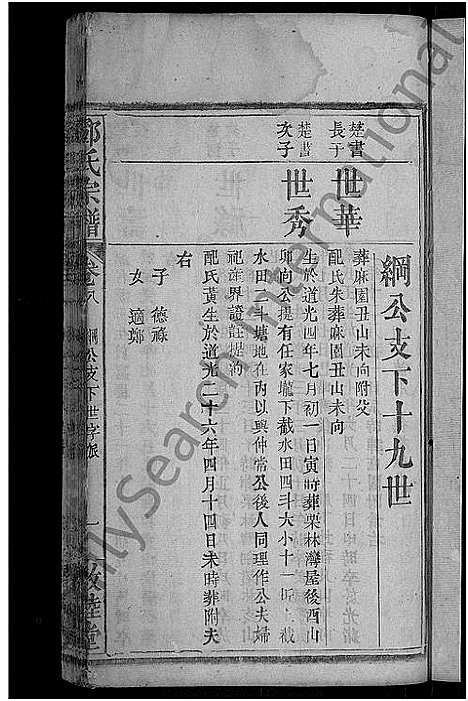 綱公支下十九世
楚書長子
世華
葬麻園丑山未向附父
配氏朱葬麻園丑山未向
楚書次子
世秀
生於道光四年七月初一日寅時葬栗林灣屋後酉山
卯向公提有任家壠下截水田四斗大小十一坵上截
水田二斗塘地在內以與仲常公後人同理作公夫婦
祀產界議註提約
配氏黃生於道光二十六年四月十四日未時葬附夫
右
子 德祿
女 適鄭
氏宗譜
卷八
綱公支下世字派
一
敦睦堂
MySearch International